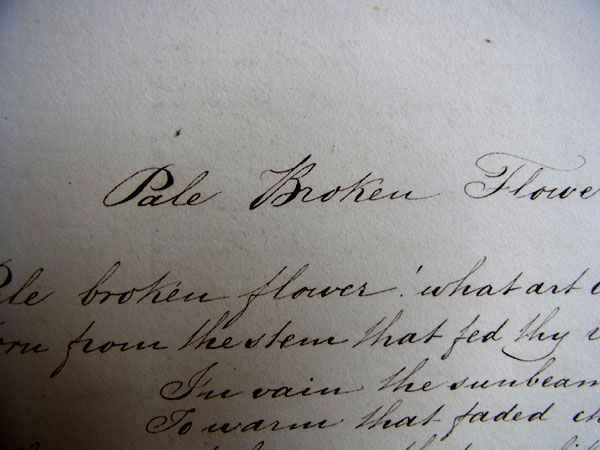 Pale Broken Flowe
ale broken flower! what art
orn from the stem that fed thy
In vain the sunbeam
To warm that faded ch